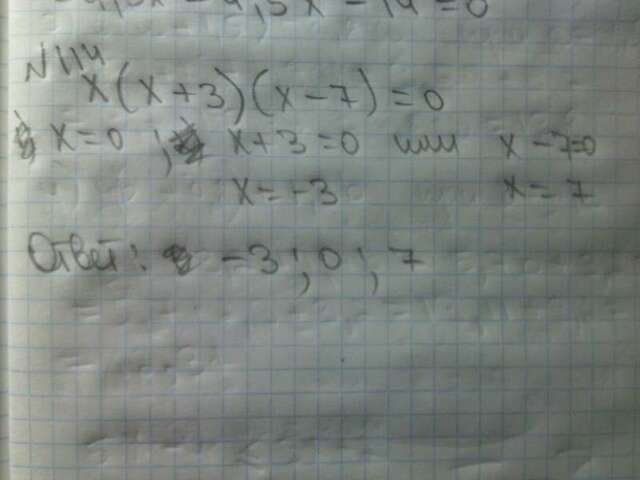 - 4,5x - 14 = 0
№ 114
x(x+3)(x-7)=0
x=0 ; x+3=0 или x-7=0
x=-3 x=7
Ответ: -3; 0; 7